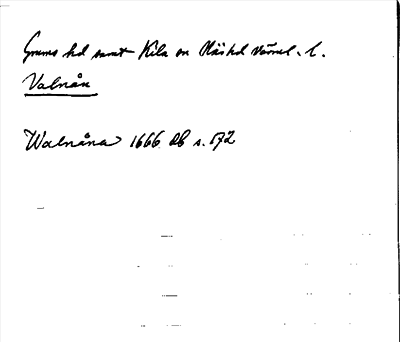 Grums hd samt Kila sn Näs hd Värml. l.
Valnån
Walnåna 1666 db s. 172